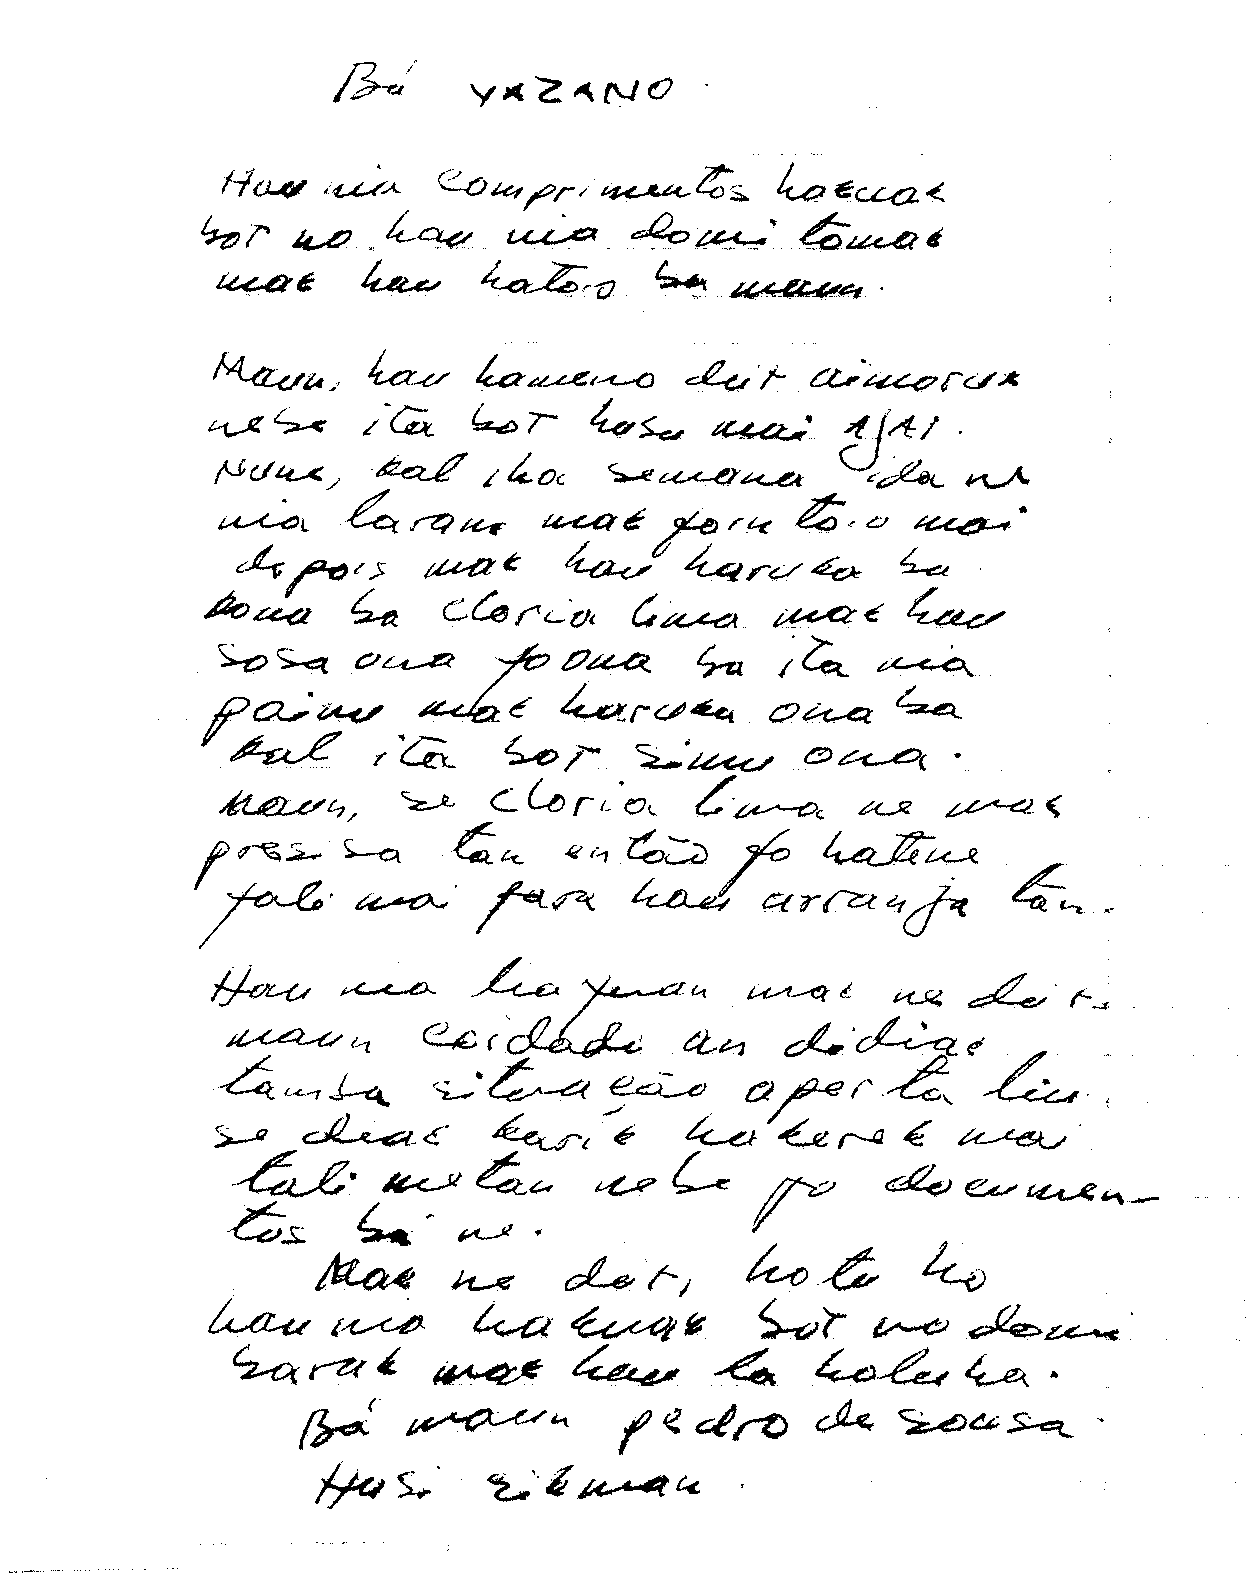 Bá YAZANO
Hau nia comprimentos hakuak
bot no hau nia domi tomak
mak hau hato,o ba maun.
Maun, hau hameno deit aimoruk
nebe ita bot husu mai
Nune, kal iha semana ida ne
nia laran mak foin to,o mai
depois mak hau haruka ba
kona ba Cloria lima mak hau
sosa ona fo ona ba ita nia
painu mak haruka ona ba
kal ita bot simu ona.
Maun, se Cloria lima ne mak
presisa tan então fo hatene
fali mai para hau arranja tan.
Hau nia liafuan mak ne deit.
maun coidado an didiak
tamba situação aperta liu.
se diak karik hakerek mai
tali metan nebe fo documen-
tos ba ne.
Mak ne deit, hotu ho
hau nia hakuak bot no domi
barak mak hau la haluha.
Bá maun pedro de sousa
Husi